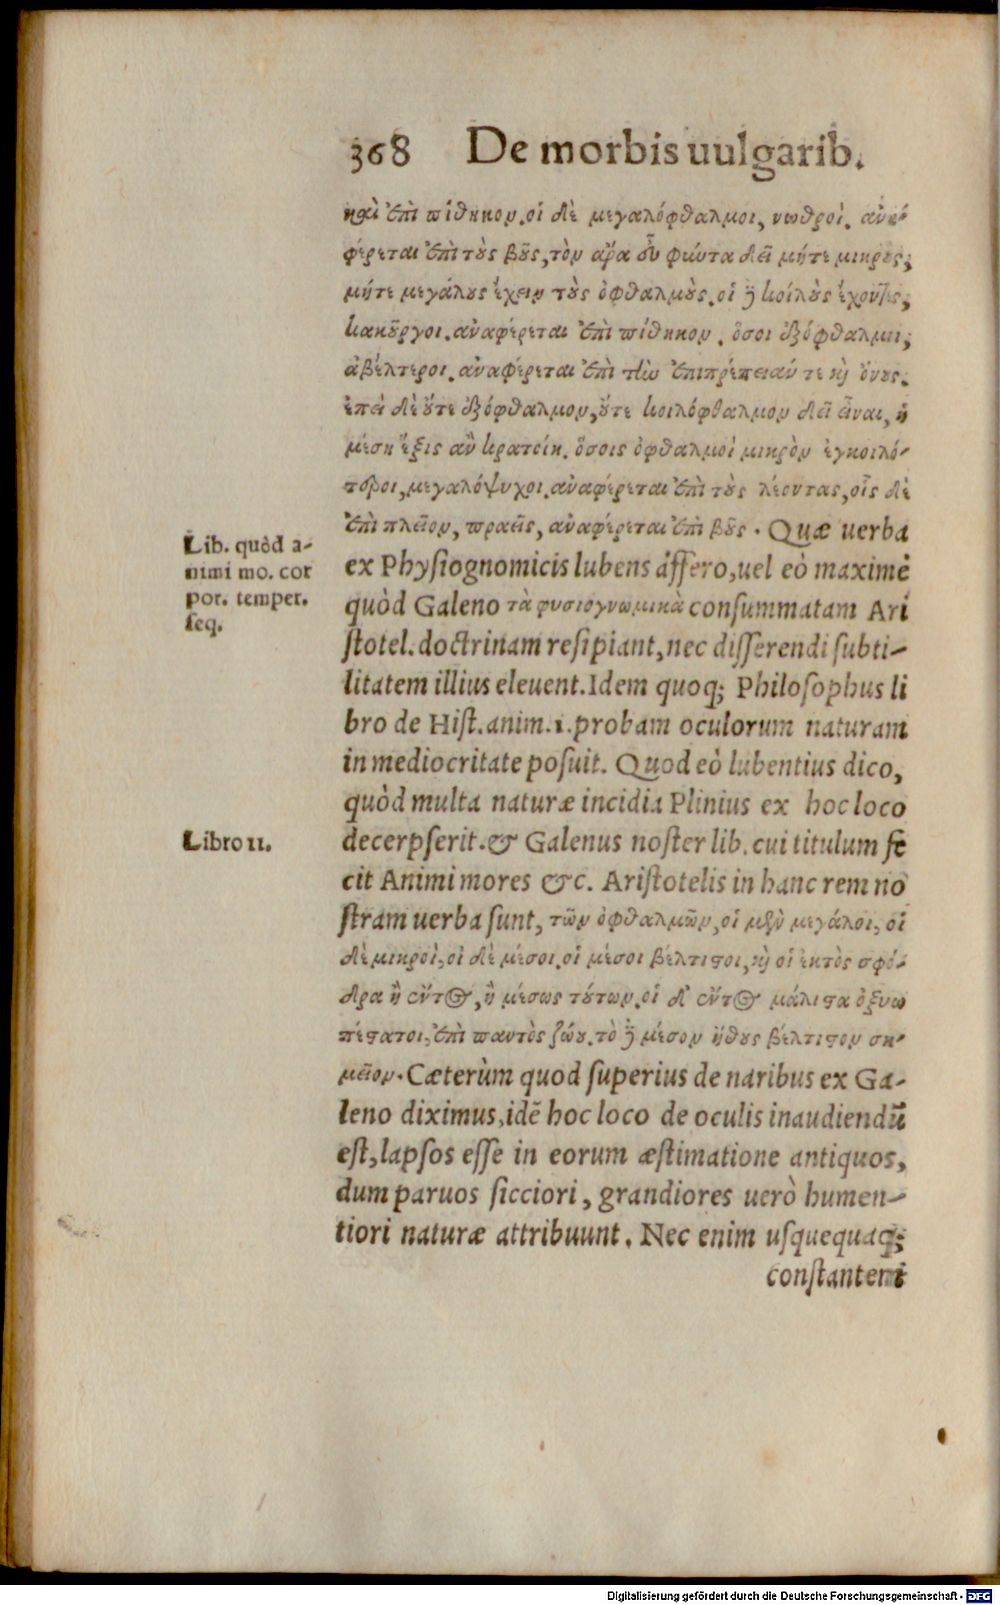 368 De morbis uulgarib.
καὶ ἐπὶ πίθηκον. οἱ δὲ μεγαλόφθαλμοι, νωθροί. ἀνα-
φέρεται ἐπὶ τοὺς βοῦς, τὸν ἄρα εὖ φιῶντα δεῖ μήτε μικροὺς,
μήτε μεγάλους ἔχειν τοὺς ὀφθαλμοὺς. οἱ δὲ κοίλους ἔχοντες,
κακοῦργοι. ἀναφέρεται ἐπὶ πίθηκον. ὅσοι ἐξόφθαλμοι,
ἀβέλτεροι. ἀναφέρεται ἐπὶ τὴν ἐπιπρέπειάν τε καὶ ὄνους.
ἐπεὶ δὲ οὔτε ἐξόφθαλμον, οὔτε κοιλόφθαλμον δεῖ εἶναι, ἡ
μέση ἕξις ἂν κρατοίη. ὅσοις ὀφθαλμοὶ μικρὸν ἐγκοιλό-
τεροι, μεγαλόψυχοι. ἀναφέρεται ἐπὶ τοὺς λέοντας, οἷς δὲ
ἐπὶ πλεῖον, πραεῖς, ἀναφέρεται ἐπὶ βοῦς. Quæ uerba
Lib. quòd a-
nimi mo. cor
por. temper.
seq.
ex Physiognomicis lubens affero, uel eò maximè
quòd Galeno τὰ φυσιογνωμικὰ consummatam Ari
stotel. doctrinam resipiant, nec disserendi subti-
litatem illius eleuent. Idem quoq; Philosophus li
bro de Hist. anim. 1. probam oculorum naturam
in mediocritate posuit. Quod eò lubentius dico,
quòd multa naturæ incidia Plinius ex hoc loco
Libro 11.
decerpserit. & Galenus noster lib. cui titulum fe
cit Animi mores &c. Aristotelis in hanc rem no
stram uerba sunt, τῶν ὀφθαλμῶν, οἱ μὲν μεγάλοι, οἱ
δὲ μικροὶ, οἱ δὲ μέσοι. οἱ μέσοι βέλτιστοι, καὶ οἱ ἐκτὸς σφό-
δρα ἢ ἐντὸς, ἢ μέσως τούτων. οἱ δ' ἐντὸς μάλιστα ὀξυω
πέστατοι, ἐπὶ παντὸς ζώου. τὸ δὲ μέσον ἤθους βέλτιστον ση-
μεῖον. Cæterùm quod superius de naribus ex Ga-
leno diximus, idē hoc loco de oculis inaudiendū
est, lapsos esse in eorum æstimatione antiquos,
dum paruos sicciori, grandiores uerò humen-
tiori naturæ attribuunt. Nec enim usquequaq;
constanter i
Digitalisierung gefördert durch die Deutsche Forschungsgemeinschaft - DFG